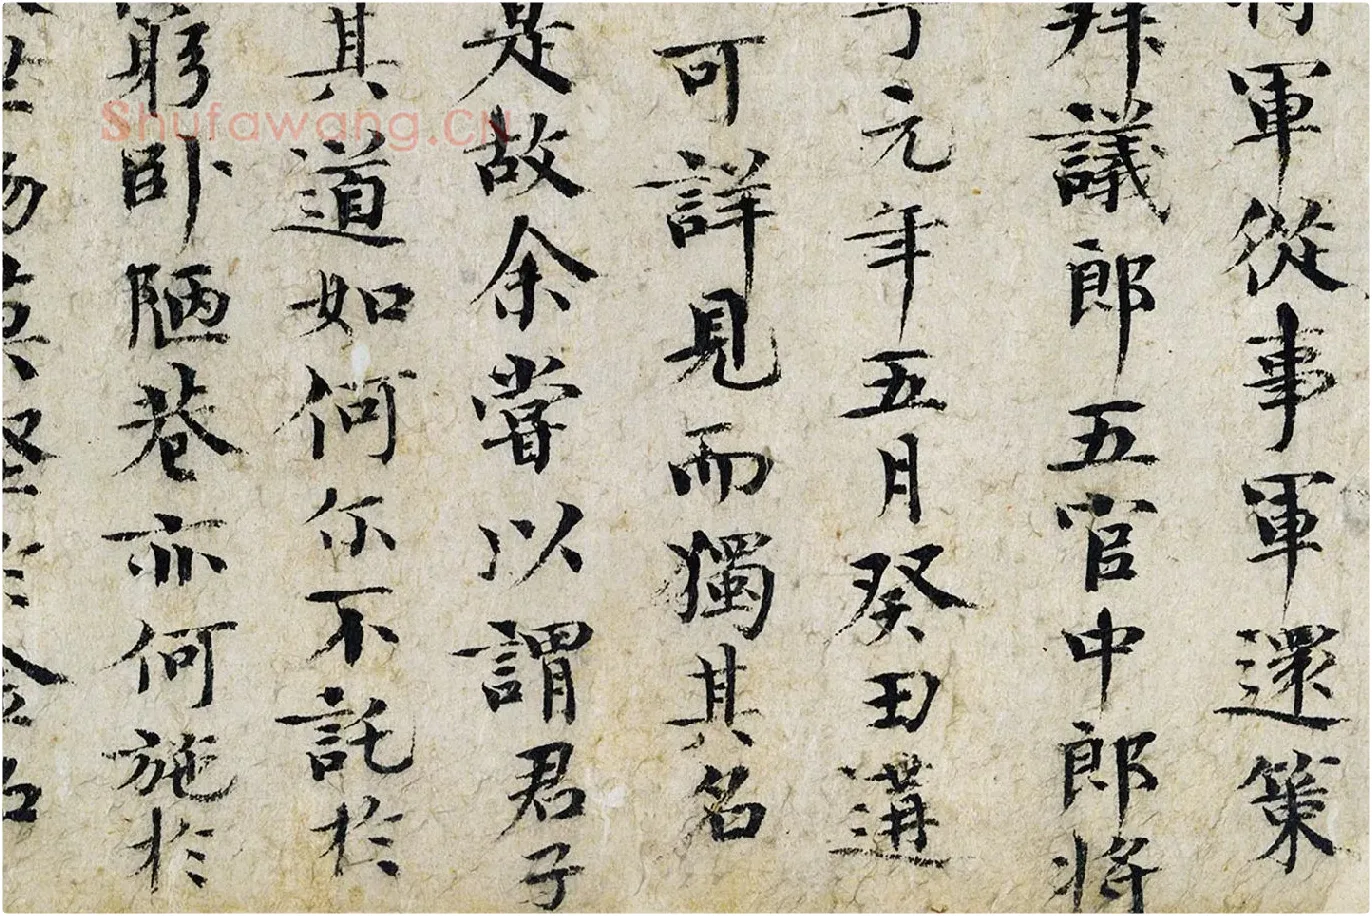 軍從事軍還策
拜議郎五官中郎將
元年五月癸丑遘
可詳見而獨其名
是故余嘗以謂君子
其道如何尔不託於
窮卧陋巷亦何施於
堅於金石
Shufawang.cn